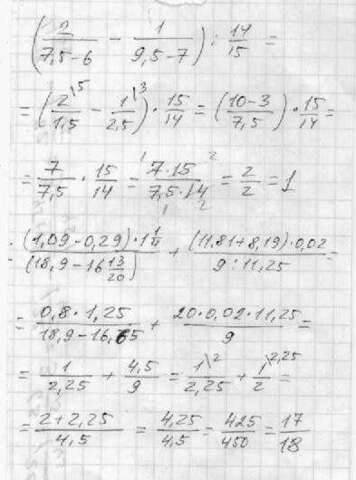 (2/(7,5-6) - 1/(9,5-7)) : 14/15 =
= (2\5/1,5 - 1\3/2,5) · 15/14 = ((10-3)/7,5) · 15/14 =
= 7/7,5 · 15/14 = 7·15/7,5·14 = 2/2 = 1
(1,09-0,29)·1 1/4/(18,9-16 13/20) + (11,81+8,19)·0,02/9:11,25 =
= 0,8·1,25/18,9-16,65 + 20·0,02·11,25/9 =
= 1/2,25 + 4,5/9 = 1\2/2,25 + 1\2,25/2 =
= 2+2,25/4,5 = 4,25/4,5 = 425/450 = 17/18